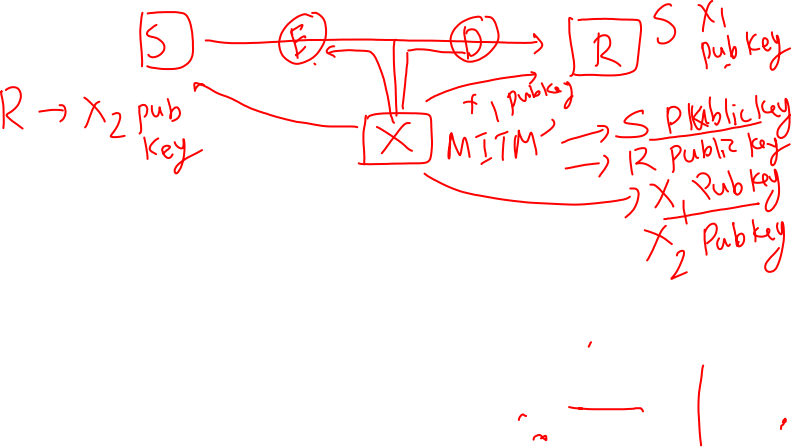 S E D R S X1
pub key
R → X2 pub
key
X x1 pubkey
MITM → S Public key
→ R public key
X1 Pub key
X2 Pub key